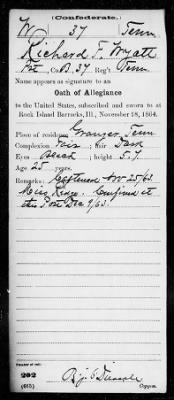 (Confederate.)
W 37 Tenn
Richard F. Wyatt
Pvt Co. B. 37 Reg't Tenn
Name appears as signature to an
Oath of Allegiance
to the United States, subscribed and sworn to at
Rock Island Barracks, Ill., November 18, 1864.
Place of residence Granger, Tenn
Complexion Fair; hair Dark
Eyes Black; height 5.7.
Age 25 years.
Remarks: Captured Nov 25/63
Miss Ridge. Confined at
this Post Dec 9/63.
Number of roll:
202
(615) Copyist.